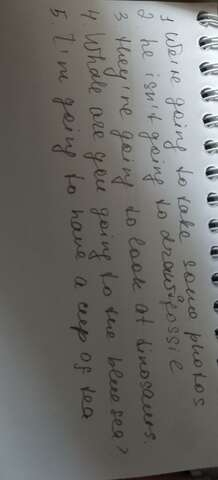 1 We're going to take some photos
2. he isn't going to draw fossie
3 they're going to look at dinosaurs.
4 Whale are you going to the bluesea?
5. I'm going to have a ceep of tea